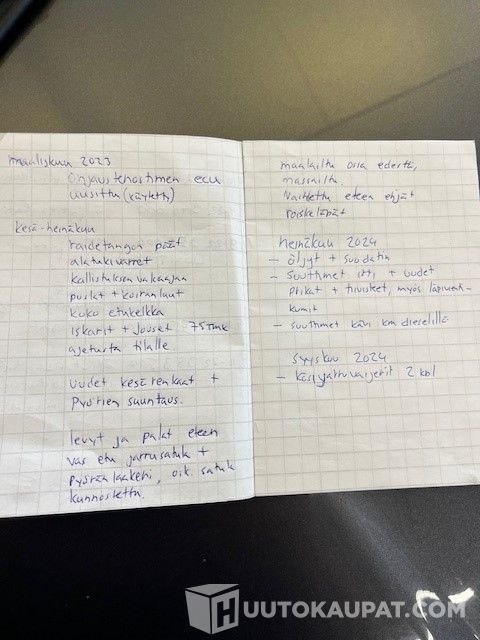 maaliskuu 2023
Ohjaustehostimen ecu
uusittu (käytetty)
kesä-heinäkuu
raidetangon päät
alatukivarret
kallistuksen vakaajan
puslat + koiranluut
koko etukelkka
iskarit + jouset 75tmk
ajetusta tilalle
uudet kesärenkaat +
pyörien suuntaus.
levyt ja palat eteen
vas etu jarrusatula +
pyöränlaakeri, oik. satula
kunnostettu.
maalailtu osia edestä,
massailtu.
Vaihdettu eteen ehjät
roiskeläpät
heinäkuu 2024
- öljyt + suodatin
- Suuttimet irti + uudet
prikat + tiivisteet, myös läpivienti-
kumit
- suuttimet kävi km dieselillä
syyskuu 2024
- käsijarruvaijerit 2 kpl
HUUTOKAUPAT.COM